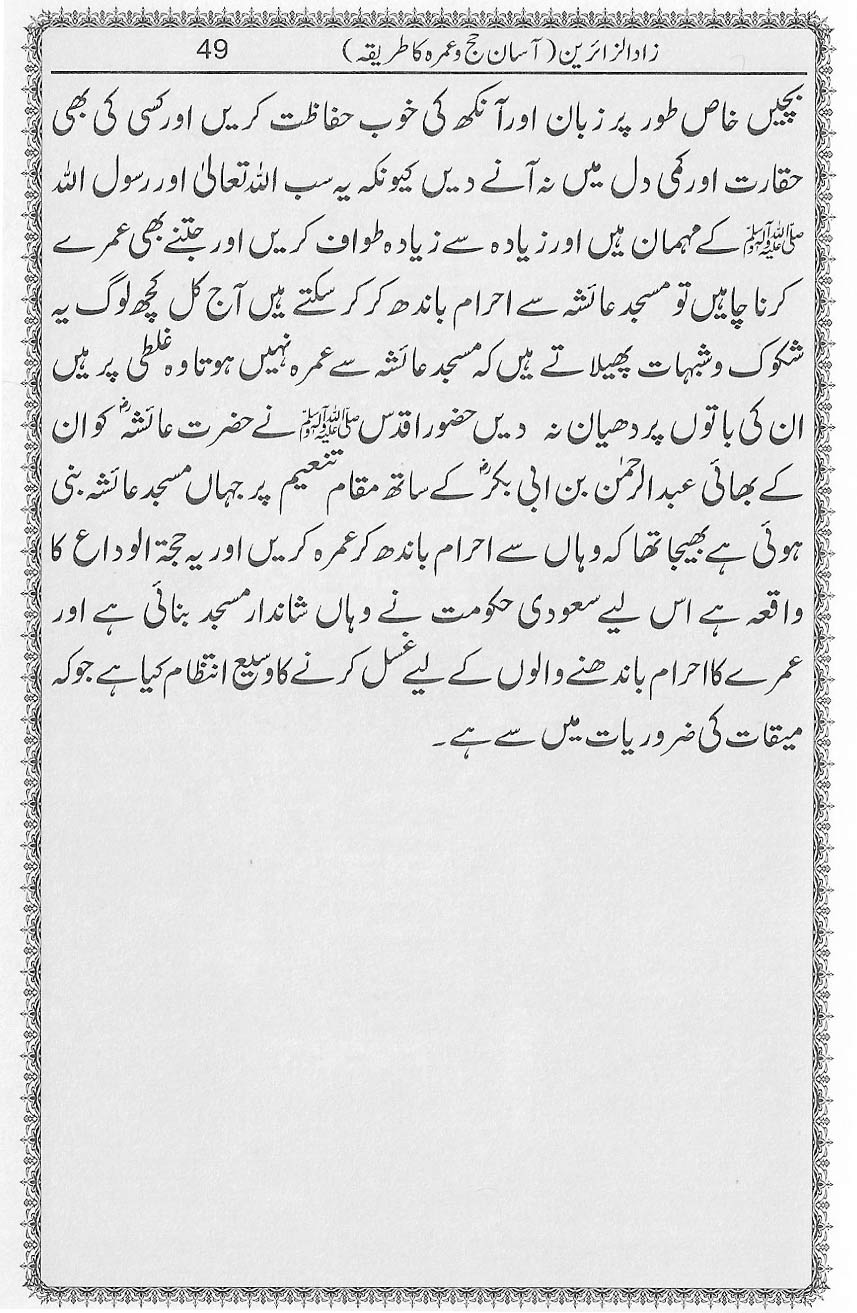 زاد الزائرین (آسان حج و عمرہ کا طریقہ) 49
بچیں خاص طور پر زبان اور آنکھ کی خوب حفاظت کریں اور کسی کی بھی
حقارت اور کمی دل میں نہ آنے دیں کیونکہ یہ سب اللہ تعالیٰ اور رسول اللہ
ﷺ کے مہمان ہیں اور زیادہ سے زیادہ طواف کریں اور جتنے بھی عمرے
کرنا چاہیں تو مسجد عائشہ سے احرام باندھ کر کر سکتے ہیں آج کل کچھ لوگ یہ
شکوک و شبہات پھیلاتے ہیں کہ مسجد عائشہ سے عمرہ نہیں ہوتا وہ غلطی پر ہیں
ان کی باتوں پر دھیان نہ دیں حضور اقدس ﷺ نے حضرت عائشہؓ کو ان
کے بھائی عبدالرحمٰن بن ابی بکرؓ کے ساتھ مقام تنعیم پر جہاں مسجد عائشہ بنی
ہوئی ہے بھیجا تھا کہ وہاں سے احرام باندھ کر عمرہ کریں اور یہ حجۃ الوداع کا
واقعہ ہے اس لیے سعودی حکومت نے وہاں شاندار مسجد بنائی ہے اور
عمرے کا احرام باندھنے والوں کے لیے غسل کرنے کا وسیع انتظام کیا ہے جو کہ
میقات کی ضروریات میں سے ہے۔